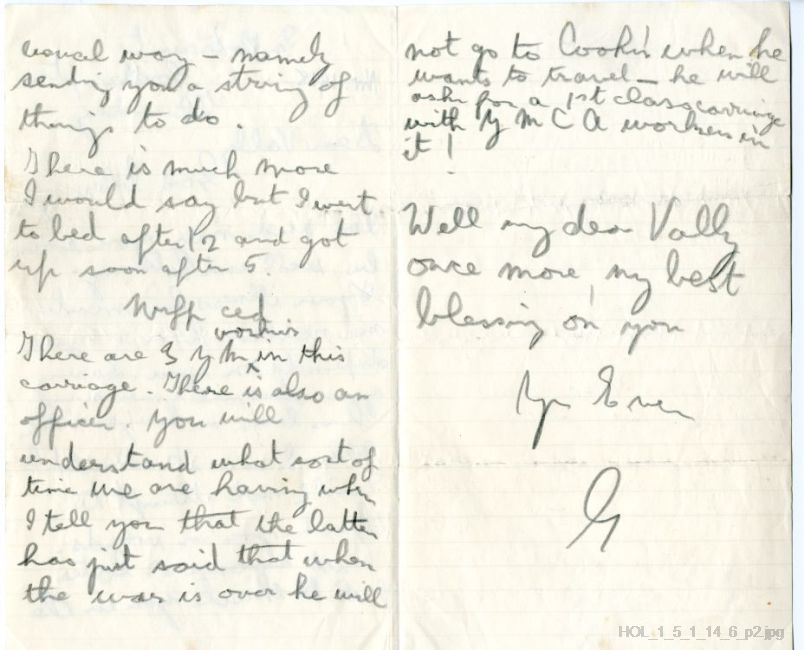 usual way – namely
sending you a string of
things to do.
There is much more
I would say but I went
to bed after 12 and got
up soon after 5.
workers
There are 3 Y M in this
carriage. There is also an
officer. You will
understand what sort of
time we are having when
I tell you that the latter
has just said that when
the war is over he will
not go to Cook's when he
wants to travel – he will
ask for a 1st class carriage
with Y M C A workers in
it!
Well my dear Vally
once more, my best
blessing on you
Yrs Ever
G
HOL_1_5_1_14_6_p2.jpg